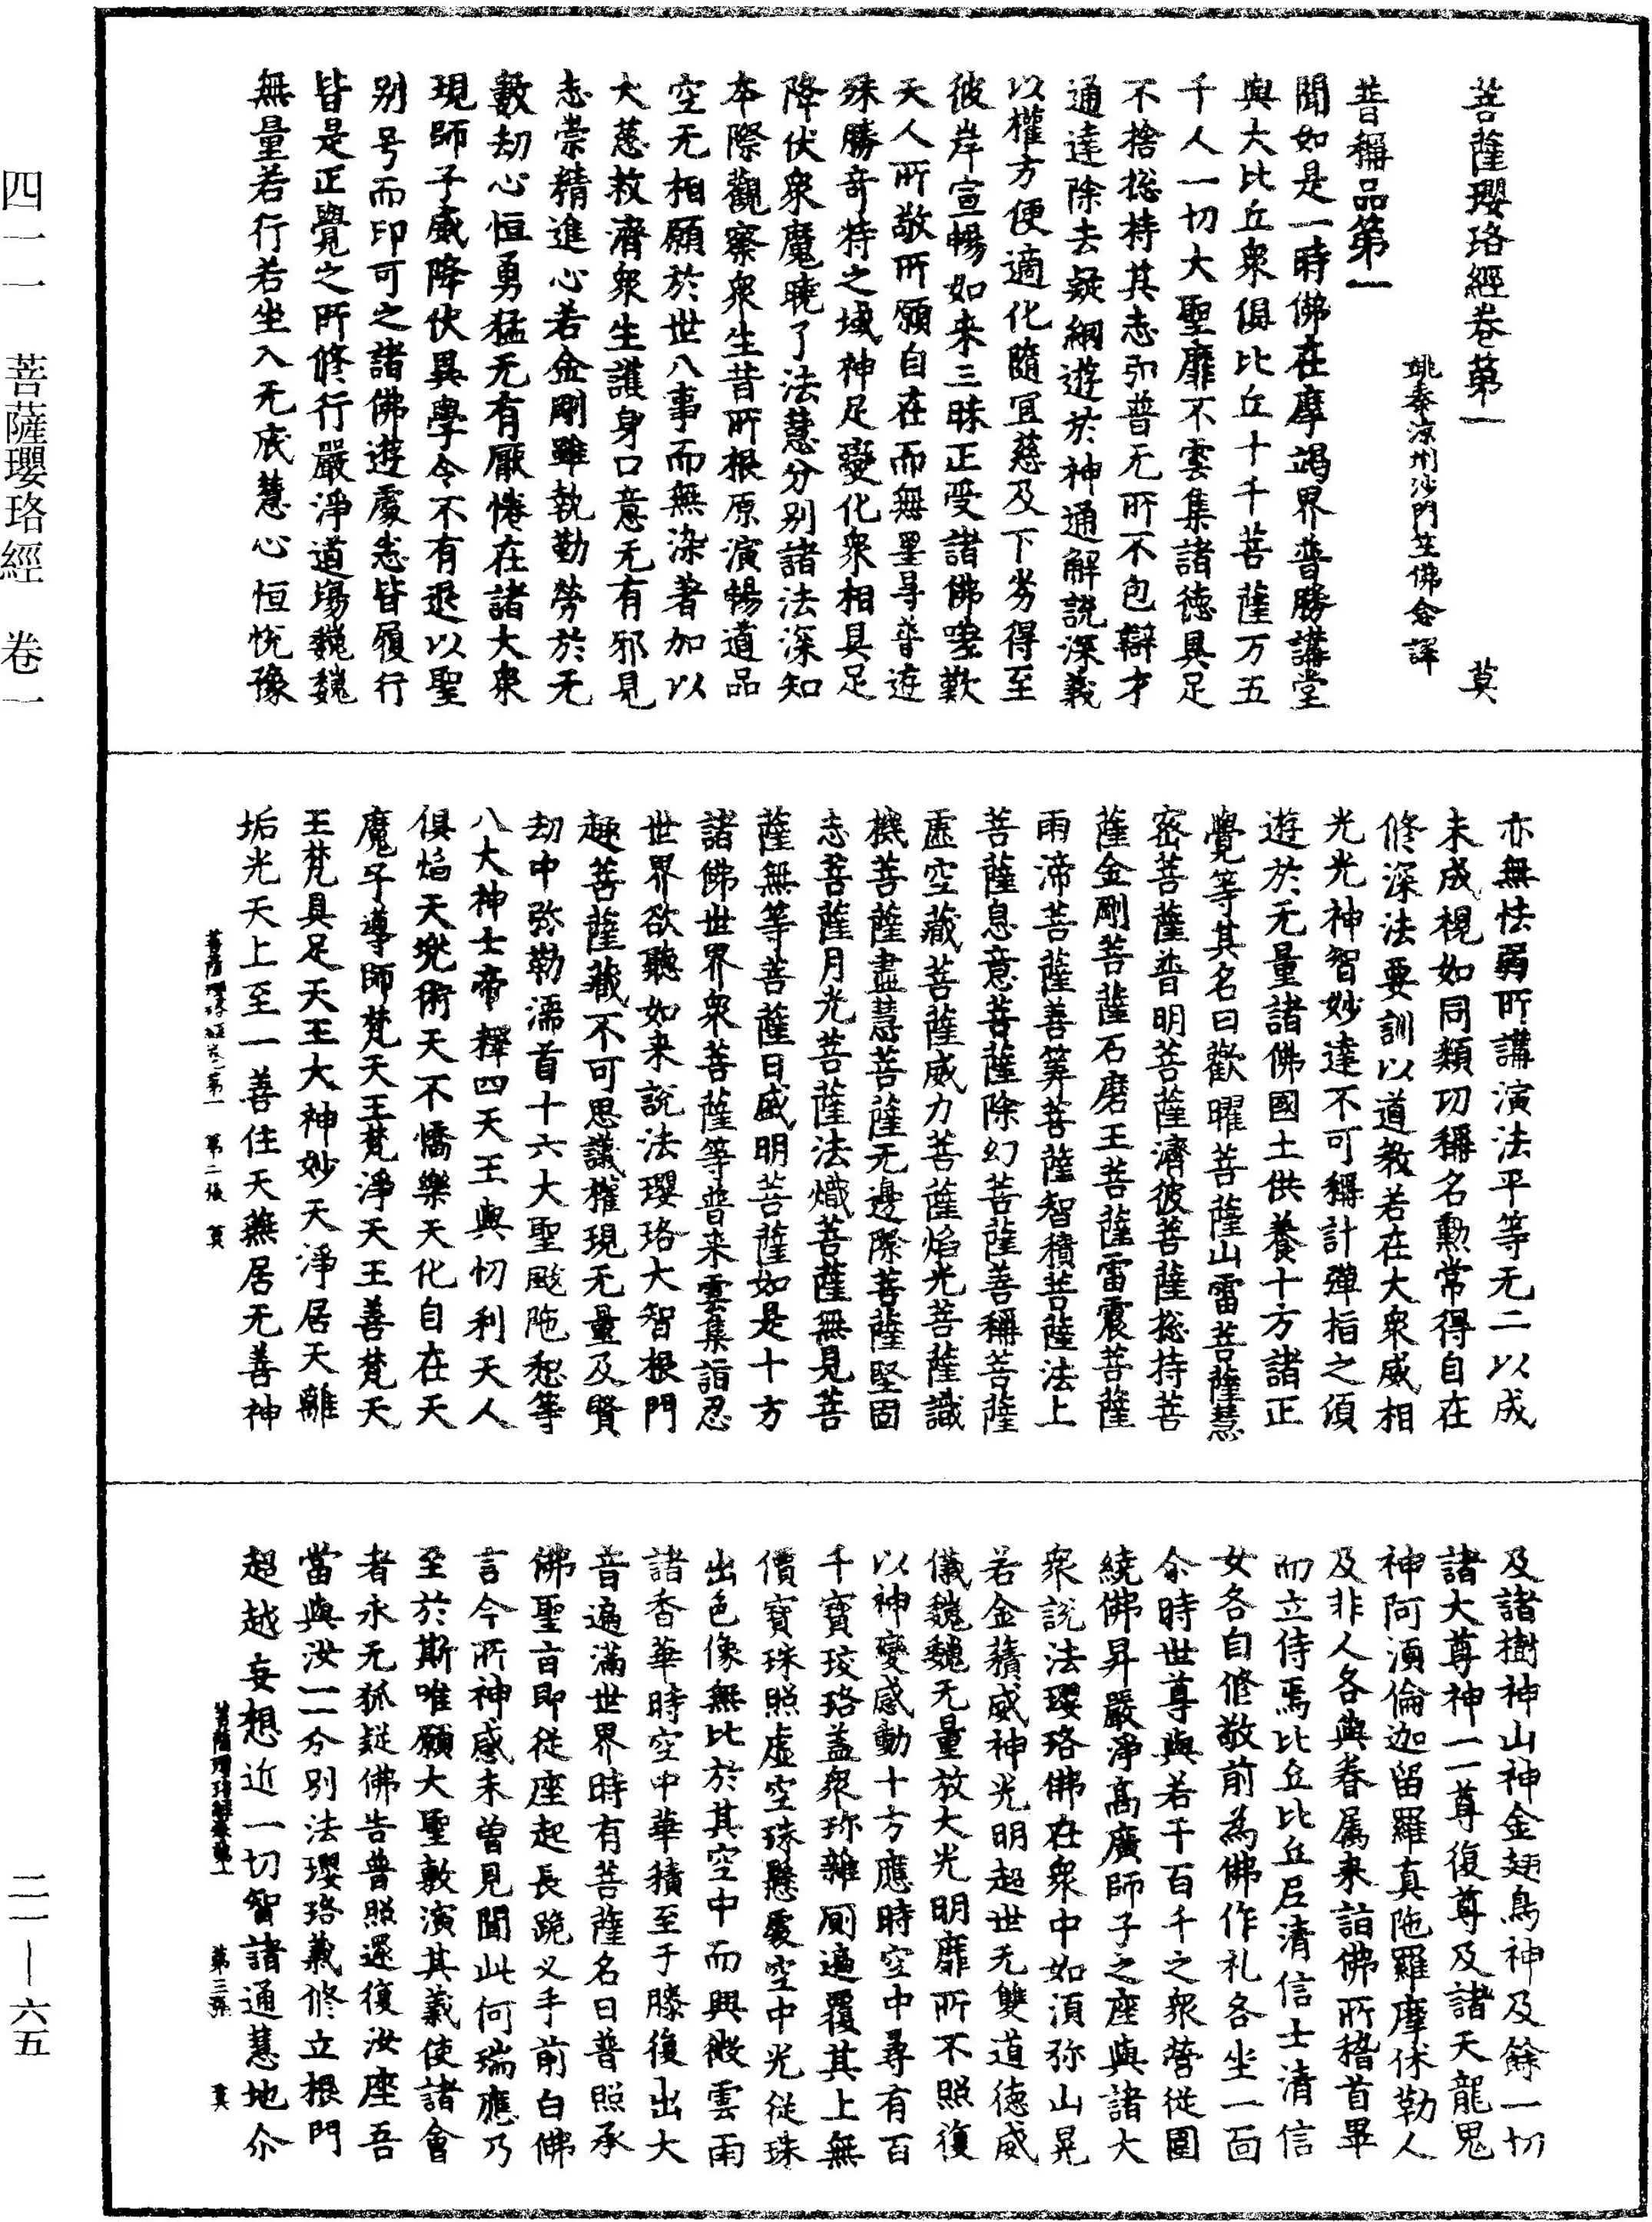 菩薩瓔珞經卷第一　莫
姚秦涼州沙門竺佛念譯
普稱品第一
聞如是一時佛在摩竭界普勝講堂
與大比丘衆俱比丘十千菩薩万五
千人一切大聖靡不雲集諸德具足
不捨捴持其志弘普无所不包辯才
通達除去疑網遊於神通解說深義
以權方便適化隨宜慈及下劣得至
彼岸宣暢如来三昧正受諸佛嗟歎
天人所敬所願自在而無罣㝵普遊
殊勝奇特之域神足變化衆相具足
降伏衆魔曉了法慧分別諸法深知
本際觀察衆生昔所根原演暢道品
空无相願於世八事而無染著加以
大慈救濟衆生護身口意无有邪見
志崇精進心若金剛雖執勤勞於无
數劫心恒勇猛无有厭惓在諸大衆
現師子威降伏異學令不有退以聖
別号而印可之諸佛遊處悉皆履行
皆是正覺之所修行嚴淨道場巍巍
無量若行若坐入无底慧心恒悅豫
亦無怯弱所講演法平等无二以成
未成視如同類功稱名勳常得自在
修深法要訓以道教若在大衆威相
光光神智妙達不可稱計彈指之須
遊於无量諸佛國土供養十方諸正
覺等其名曰歡曜菩薩山雷菩薩慧
密菩薩普明菩薩濟彼菩薩捴持菩
薩金剛菩薩石磨王菩薩雷震菩薩
雨渧菩薩善筭菩薩智積菩薩法上
菩薩息意菩薩除幻菩薩善稱菩薩
虛空藏菩薩威力菩薩焰光菩薩識
機菩薩盡慧菩薩无邊際菩薩堅固
志菩薩月光菩薩法熾菩薩無見菩
薩無等菩薩日盛明菩薩如是十方
諸佛世界衆菩薩等普来雲集詣忍
世界欲聽如来說法瓔珞大智根門
趣菩薩藏不可思議權現无量及賢
劫中弥勒濡首十六大聖颰陁惒等
八大神士帝釋四天王與忉利天人
俱焰天兜術天不憍樂天化自在天
魔子導師梵天王梵淨天王善梵天
王梵具足天王大神妙天淨居天離
垢光天上至一善住天無居无善神
菩薩瓔珞經卷第一　第二張　莫
及諸樹神山神金翅鳥神及餘一切
諸大尊神一一尊復尊及諸天龍鬼
神阿須倫迦留羅真陁羅摩休勒人
及非人各與眷属来詣佛所稽首畢
而立侍焉比丘比丘尼清信士清信
女各自修敬前為佛作礼各坐一面
尒時世尊與若干百千之衆營從圍
繞佛昇嚴淨高廣師子之座與諸大
衆說法瓔珞佛在衆中如須弥山晃
若金積威神光明超世无雙道德威
儀巍巍无量放大光明靡所不照復
以神變感動十方應時空中尋有百
千寶珓珞盖衆珎雜厠遍覆其上無
價寶珠照虛空珠懸處空中光從珠
出色像無比於其空中而興微雲雨
諸香華時空中華積至于膝復出大
音遍滿世界時有菩薩名曰普照承
佛聖旨即從座起長跪叉手前白佛
言今所神感未曾見聞此何瑞應乃
至於斯唯願大聖敷演其義使諸會
者永无狐疑佛告普照還復汝座吾
當與汝一一分別法瓔珞義修立根門
超越妄想近一切智諸通慧地尒
菩薩瓔珞經卷第一　第三張　莫
四一一　菩薩瓔珞經　卷一
二一—六五